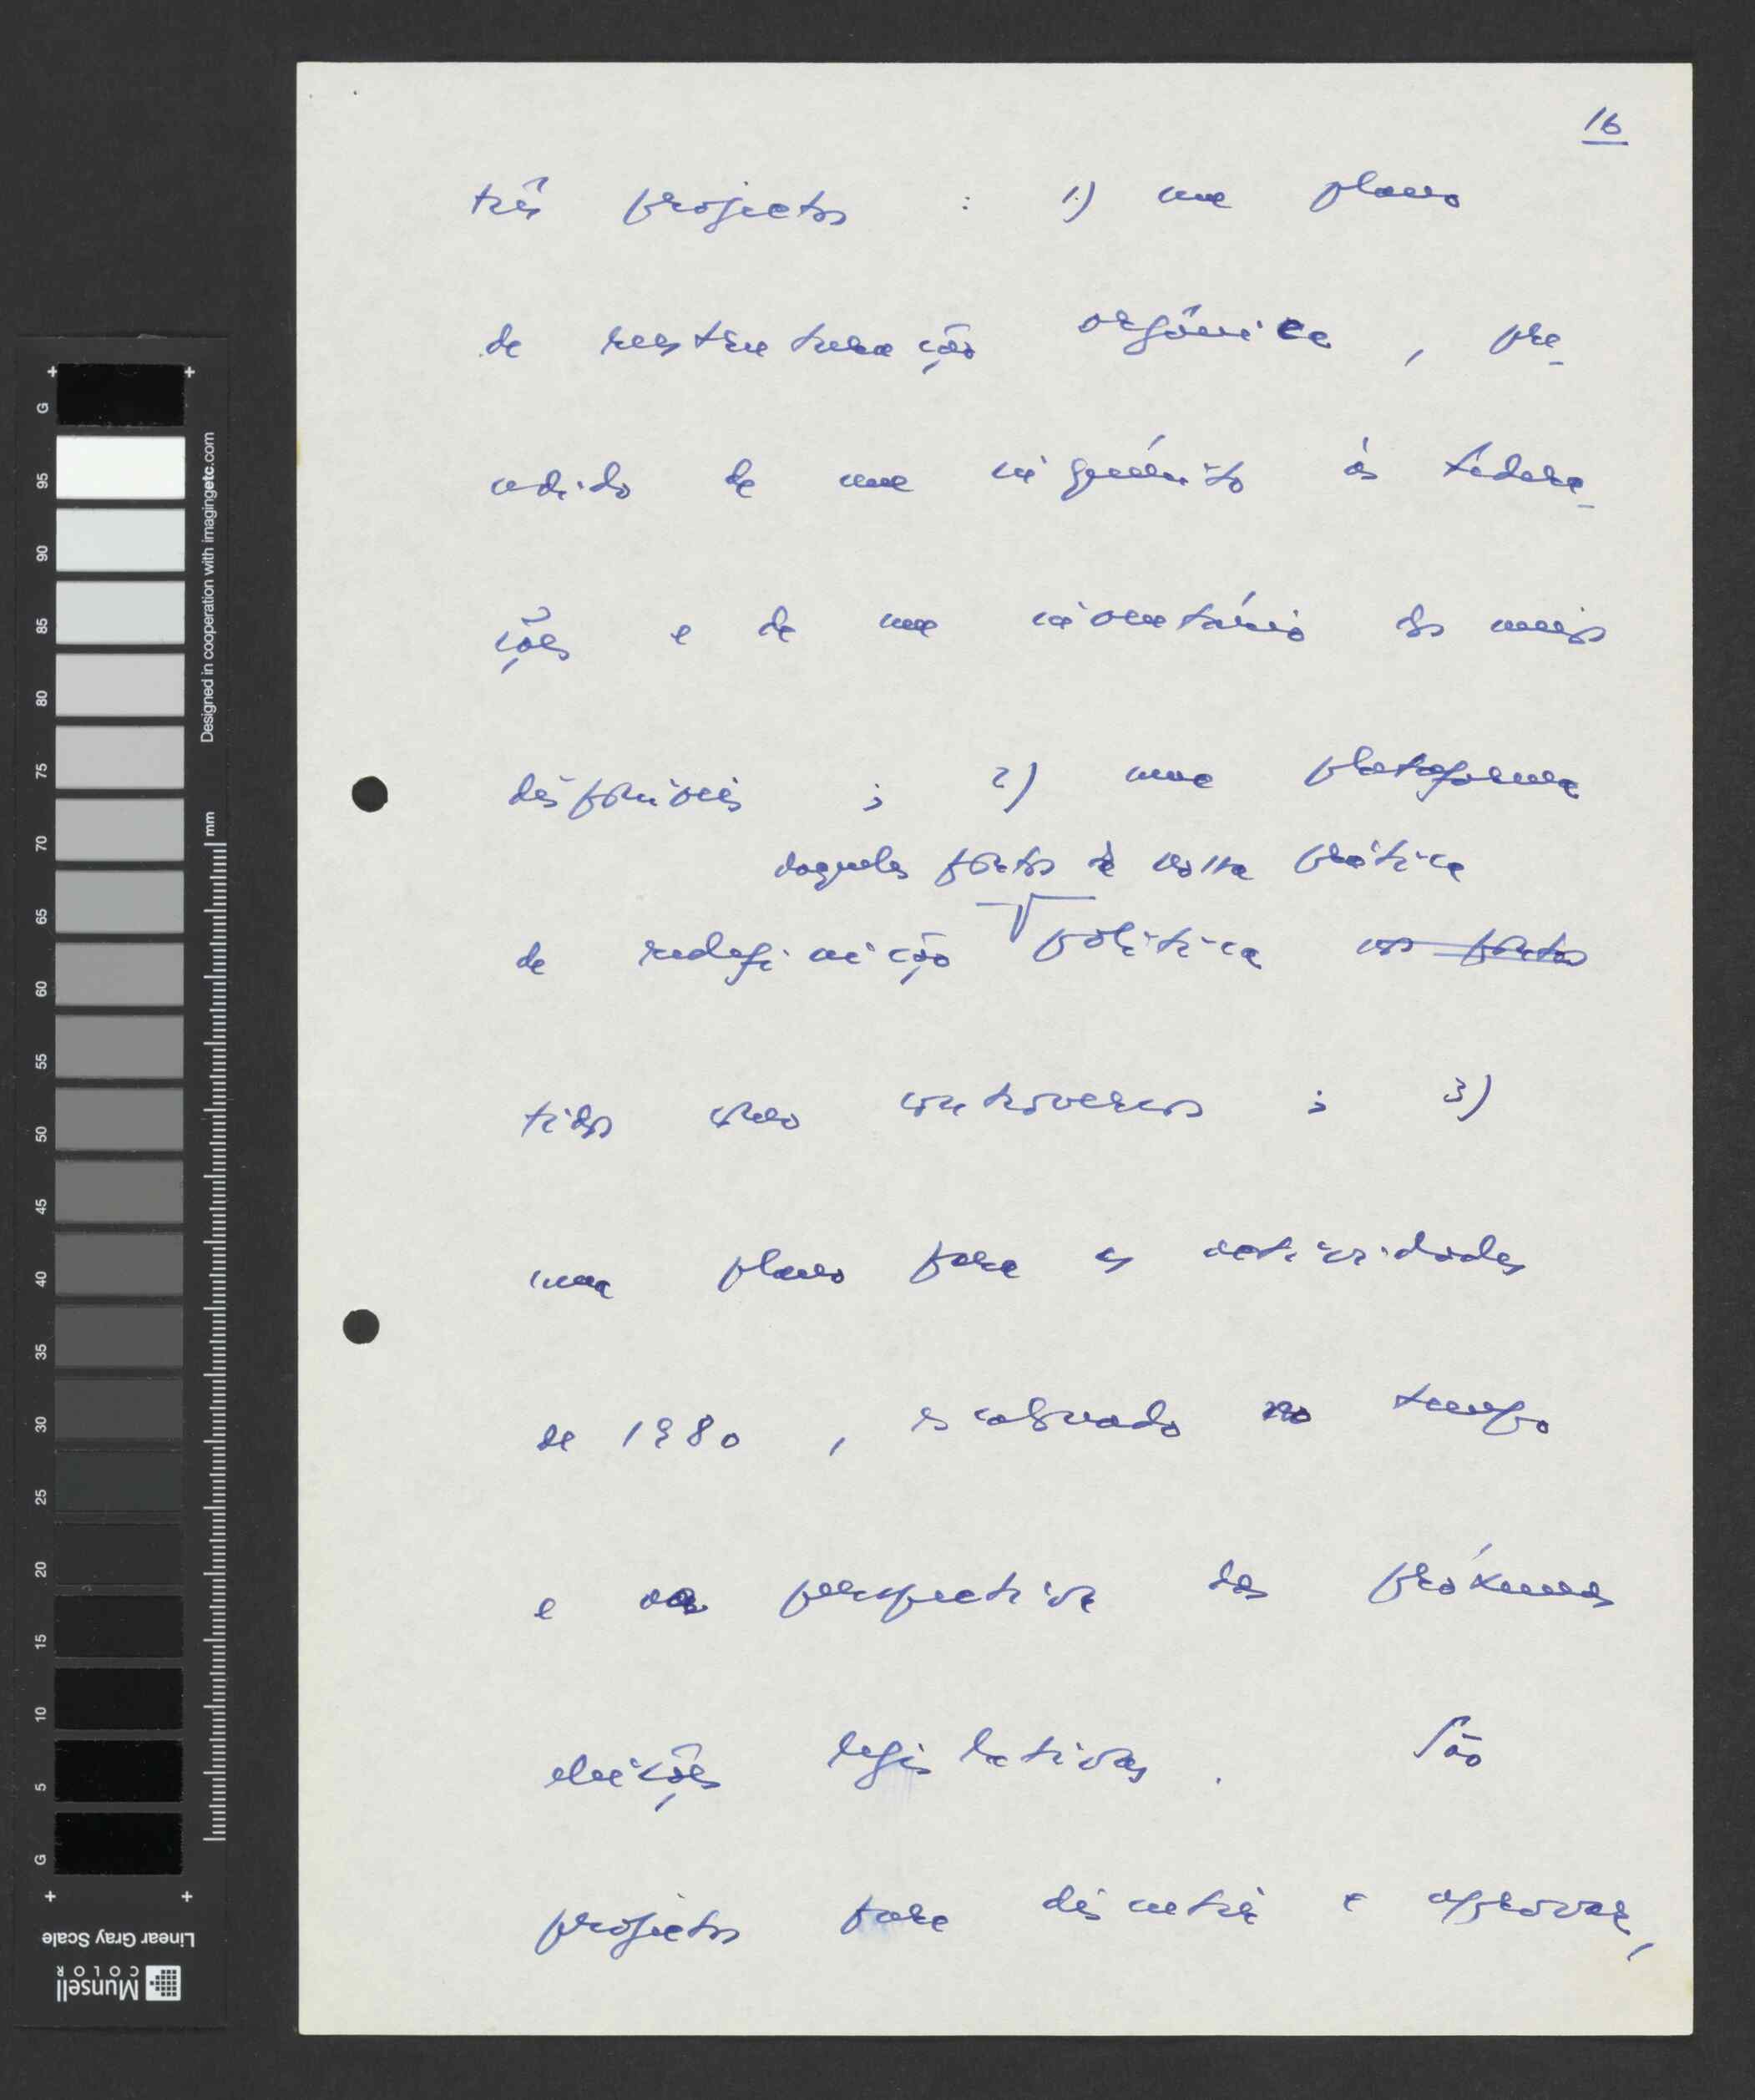 16
três projectos : 1) um plano
de reestruturação orgânica , pre-
cedido de um inquérito às federa-
ções e de um inventário dos meios
disponíveis ; 2) uma plataforma
daqueles pontos da nossa prática
de redefinição política nos pontos
tidos como controversos ; 3)
um plano para as actividades
de 1980 , escalonado no tempo
e na perspectiva das próximas
eleições legislativas . São
projectos para discutir e aprovar,
G
95
90
85
80
75
70
65
60
55
50
45
40
35
30
25
20
15
10
5
G
Designed in cooperation with imagingetc.com
mm
Linear Gray Scale
Munsell
COLOR